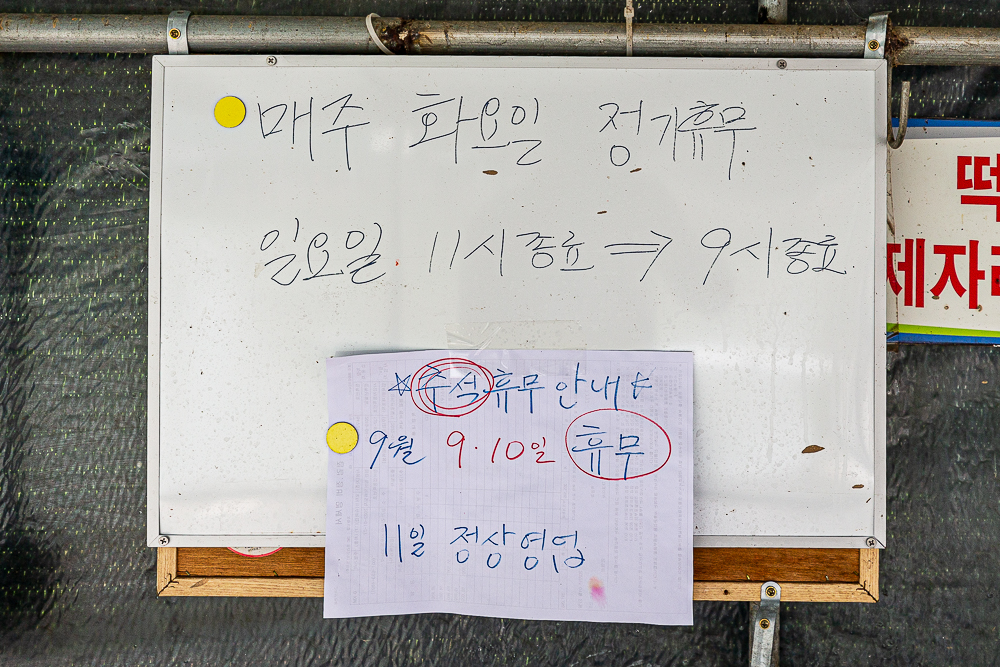 매주 화요일 정기휴무
일요일 11시종료 ⇒ 9시종료
☆추석휴무안내☆
9월 9·10일 휴무
11일 정상영업
떡
제자리